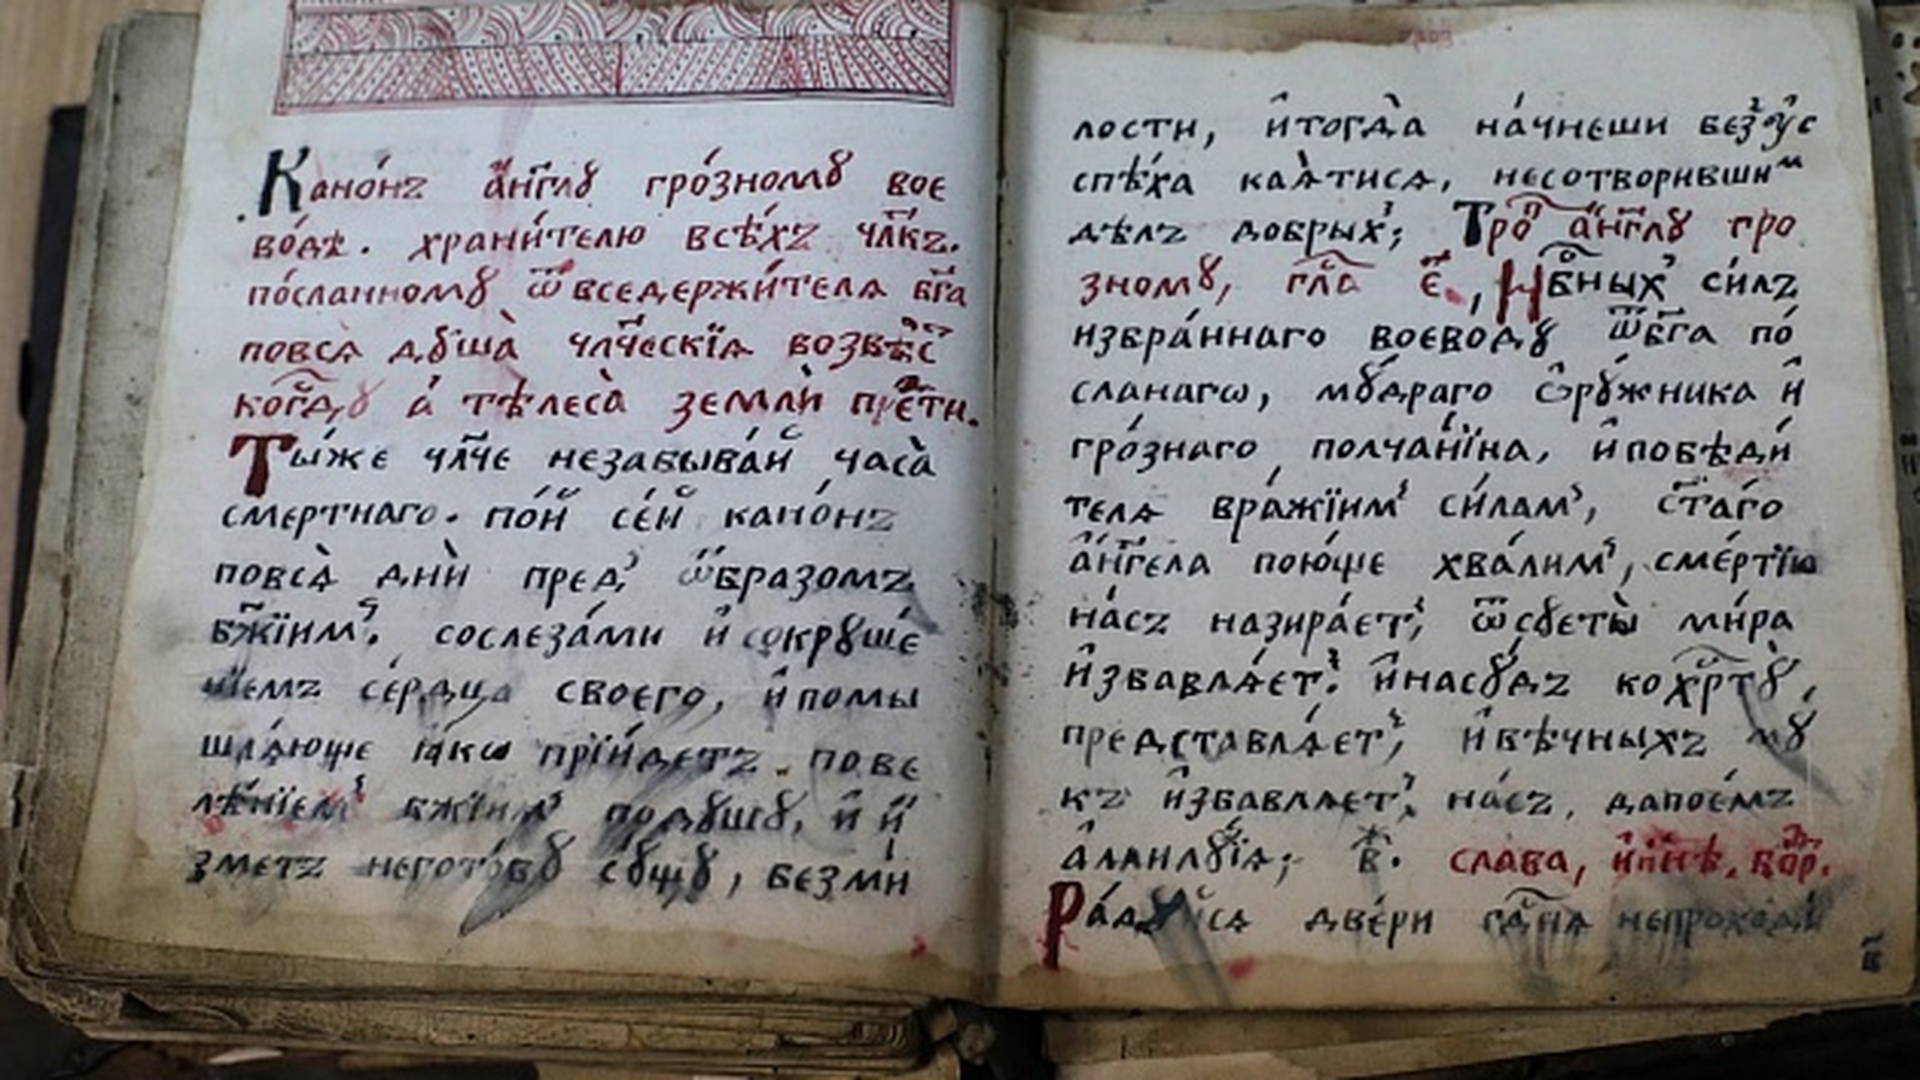 Канѡ́нꙁ а҆́нг҃лꙋ гро́зномꙋ вое
во́дѣ. храни́телю всѣ́хꙁ чл҃кꙁ.
по́сланномꙋ ѿвседержи́телѧ бг҃а
повсѧ дꙋ́ша̀ чл҃ческїѧ
а҆ тѣлеса̀ земли̑
Ты́же чл҃че незабыва́й часа̀
смертнаго. по́й се́й кано́нꙁ
повсѧ̀ дни̑ пред̾ ѡ҆́бразомꙁ
бж҃їим̾. сослеза́ми и҆сокрꙋше́
нїемꙁ се́рдца своего, и҆помы
шлѧ́юще ꙗ҆́кѡ прїи́детꙁ пове
лѣ́нїем̾ бж҃їим̾ подꙋшꙋ, и҆ и҆
зметꙁ негото́вꙋ сꙋ́щꙋ, безми́
лости, и҆тогда̀ на́чнеши без̾ꙋс
спѣ́ха ка́ѧтисѧ, несотворившим
дѣлꙁ добрых̾; Тро̑п а҆́нг҃лꙋ гро
зномꙋ, гла̑с є҃. Нб҃ных̾ си́лꙁ
избра́ннаго воеводꙋ ѿбг҃а по́
сланагѡ, мꙋ́драго ѻ҆рꙋжника и҆
гро́знаго полча́нїна, и҆побѣди́
телѧ вра́жїим̾ си́лам̾, ст҃аго
а҆́нг҃ела пою́ще хва́лим̾, сме́ртїю
на́сꙁ назира́ет̾, ѿсꙋеты̀ ми́ра
и҆збавлѧ́ет̾. и҆насꙋ́дꙁ кохр҃тꙋ́,
представлѧ́ет̾, и҆вѣчныхꙁ мꙋ́
кꙁ и҆збавлѧет̾ на́сꙁ, дапое́мꙁ
а҆лилꙋ́їѧ; в҃. слава, и҆нн҃ѣ, бг҃ор.
Ра́дꙋйсѧ две́ри гд҃нѧ непроходи́